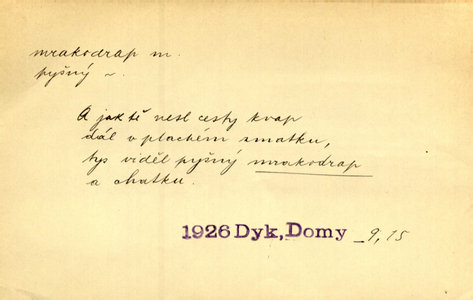 mrakodrap m.
pyšný ~.
A jak tě nesl cesty kvap
dál v plachém zmatku,
tys viděl pyšný mrakodrap
a chatku.
1926 Dyk, Domy _9, 15